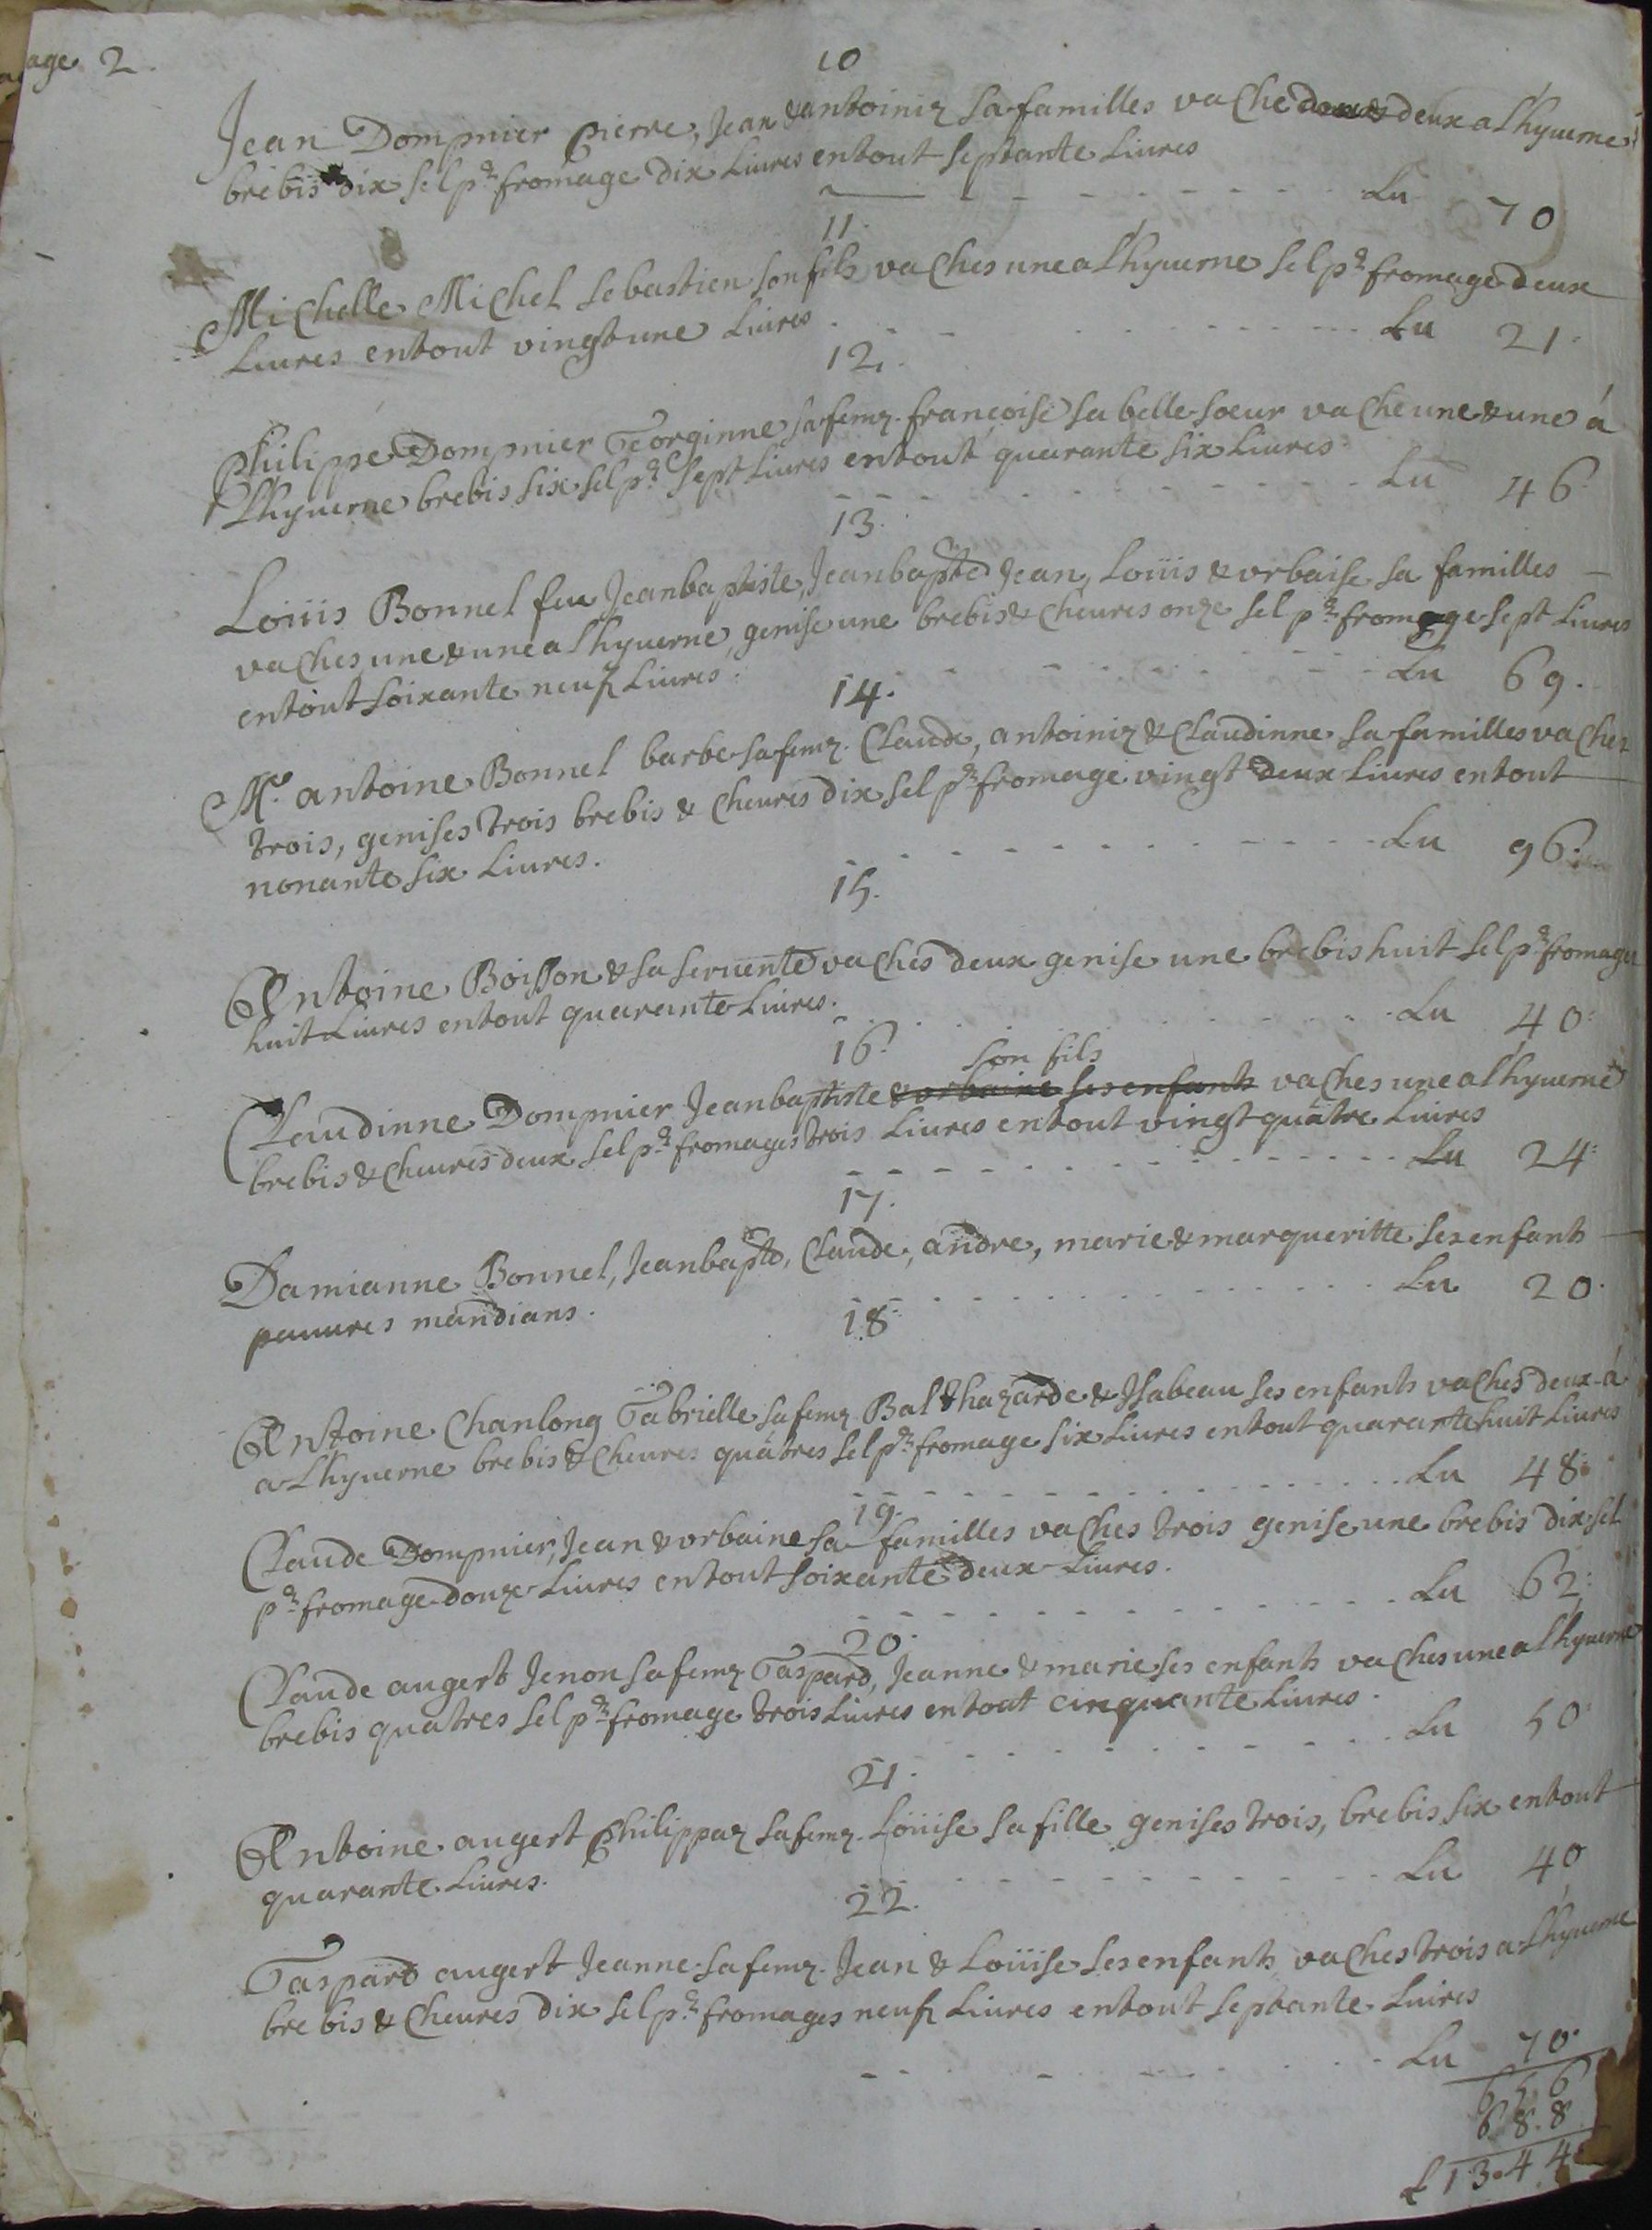 age 2.
10
Jean Dompnier Pierre, Jean & antoiniz sa familles vache deux a Lhyuerne
brebis dix sel pr fromage dix Liures entout septante Liures
Lu 70
11.
Michelle Michel sebastien son fils vaches une a Lhyuerne sel pr fromage deux
Liures entout vingt une Liures
Lu 21.
12.
Philippe Dompnier Georginne sa femz. françoise sa belle soeur vache une & une á
Lhyuerne brebis six sel pr sept Liures entout quarante six Liures
Lu 46
13.
Loüis Bonnel feu Jeanbaptiste, Jeanbapte Jean, Loüis & vrbaise sa familles
vaches une & une a Lhyuerne, genise une brebis & Cheures onze sel pr fromage sept Liures
entout soixante neuf Liures.
Lu 69.
14.
Me. antoine Bonnel barbe sa femz. Claude, antoiniz & Claudinne sa familles vaches
trois, genises trois brebis & Cheures dix sel pr fromage vingt deux Liures entout
nonante six Liures.
Lu 96.
15.
Antoine Boisson & sa seruente vaches deux genise une brebis huit sel pr fromage
huit Liures entout quarante Liures.
Lu 40.
16.
son fils
Claudinne Dompnier Jeanbaptiste & vrbaine ses enfants vaches une a Lhyuerne
brebis & Cheures deux sel pr fromages trois Liures entout vingt quatre Liures
Lu 24.
17.
Damianne Bonnel, Jeanbapte, Claude, andre, marie & marqueritte ses enfants
pauures mandians.
Lu 20.
18.
Antoine Chanlong Gabrielle sa femz. Balthazarde & Ysabeau ses enfants vaches deux á
a Lhyuerne brebis & Cheures quatres sel pr fromage six Liures entout quarante huit Liures
Lu 48.
19.
Claude Dompnier, Jean & vrbaine sa familles vaches trois genise une brebis dix sel
pr fromage douze Liures entout soixante deux Liures.
Lu 62.
20.
Claude augert Jenon sa femz Gaspard, Jeanne & marie ses enfants vaches une a Lhyuerne
brebis quatres sel pr fromage trois Liures entout cinquante Liures.
Lu 50
21.
Antoine augert Philippaz sa femz. Loüise sa fille genises trois, brebis six entout
quarante Liures.
Lu 40
22.
Gaspard augert Jeanne sa femz. Jean & Loüise ses enfants vaches trois a Lhyuerne
brebis & Cheures dix sel pr fromages neuf Liures entout septante Liures
Lu 70.
656
688
£ 1344